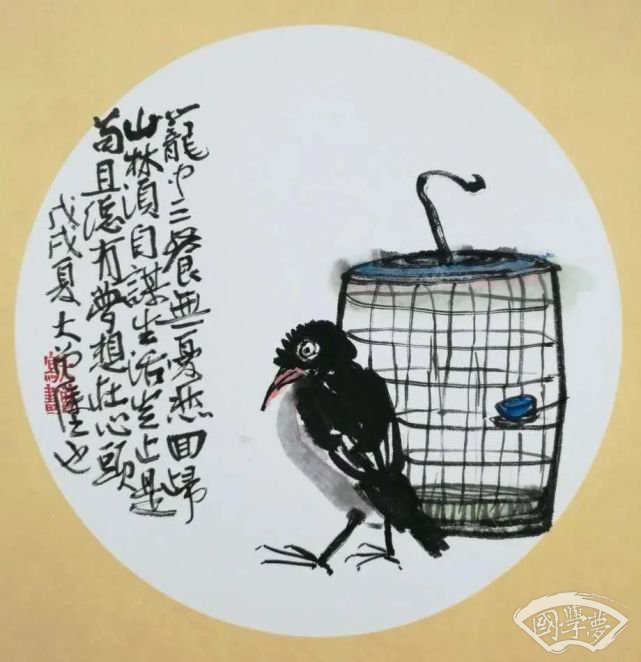 籠中三餐無憂愁回歸
山林須自謀生活豈止是
苟且總有夢想在心頭
戊戌夏大也
國學夢